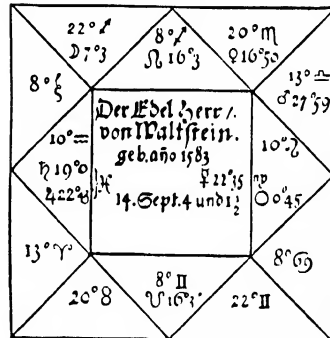 22°♐
☽7°3
8°♐
☊16°3
20°♏
♀16°50
13°♎
♂27°59
8°♑
10°♒
♄19°0
♃22°♓
Der Edel Herr /.
von Waltstein.
geb. año 1583
☿22°35
14. Sept. 4 und 1½
10°♌
♍
☉0°45
13°♈
20°♉
8°♊
☋16°3
22°♊
8°♋